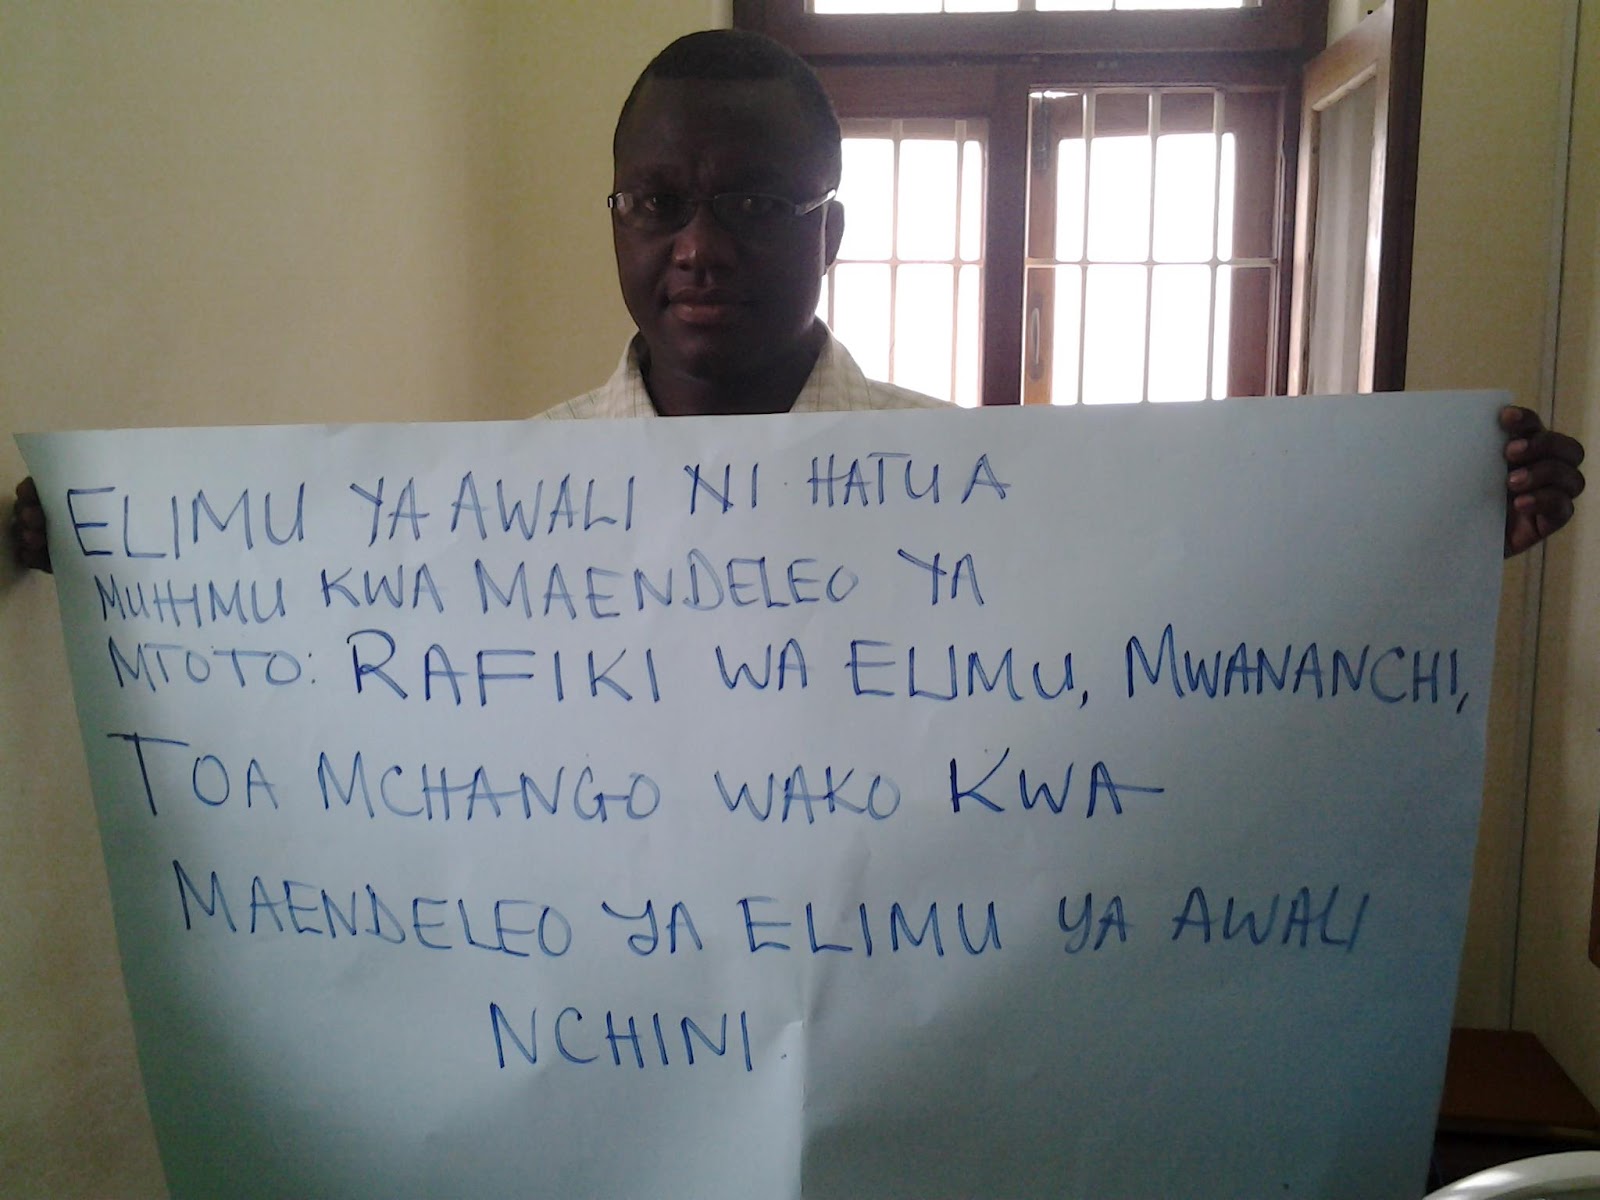 ELIMU YA AWALI NI HATUA
MUHIMU KWA MAENDELEO YA
MTOTO: RAFIKI WA ELIMU, MWANANCHI,
TOA MCHANGO WAKO KWA
MAENDELEO YA ELIMU YA AWALI
NCHINI.